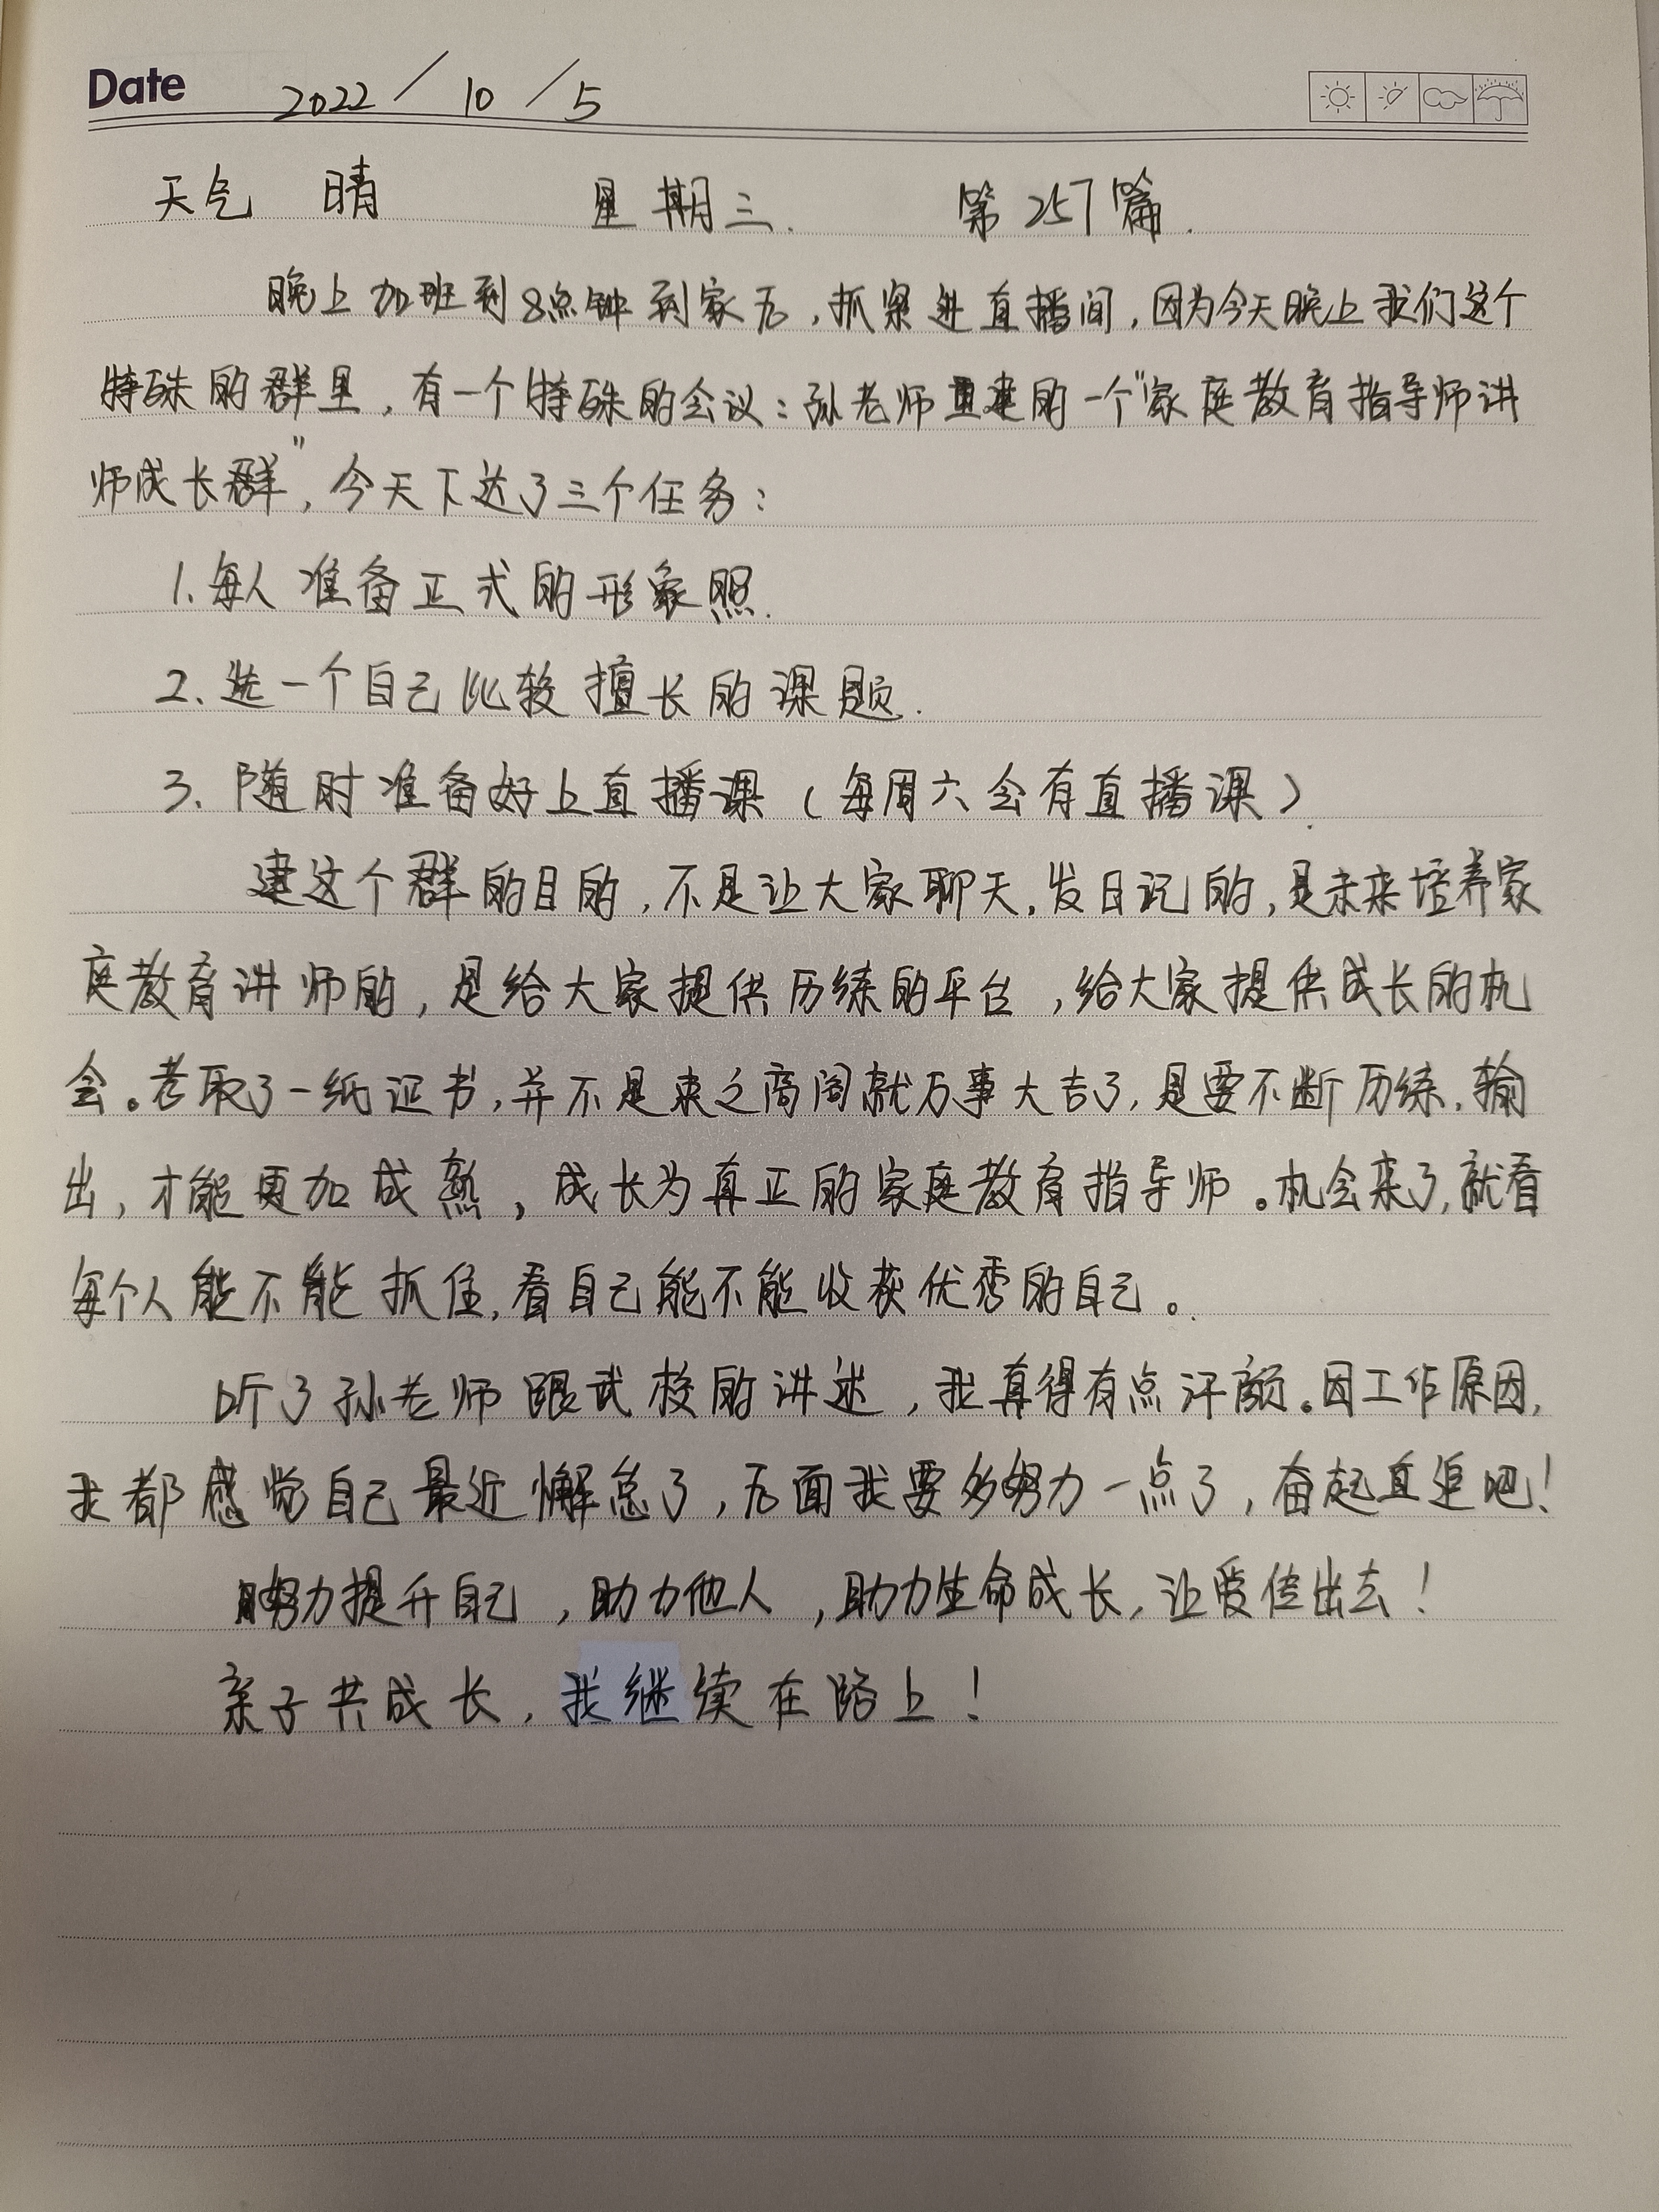 Date 2022 / 10 / 5
天气 晴 星期三. 第257篇.
晚上加班到8点钟到家后,抓紧进直播间,因为今天晚上我们这个
特殊的群里,有一个特殊的会议:孙老师重建的一个"家庭教育指导师讲
师成长群",今天下达了三个任务:
1.每人准备正式的形象照.
2.选一个自己比较擅长的课题.
3.随时准备好上直播课(每周六会有直播课).
建这个群的目的,不是让大家聊天,发日记的,是未来培养家
庭教育讲师的,是给大家提供历练的平台,给大家提供成长的机
会。考取了一纸证书,并不是束之高阁就万事大吉了,是要不断历练,输
出,才能更加成熟,成长为真正的家庭教育指导师。机会来了,就看
每个人能不能抓住,看自己能不能收获优秀的自己。
听了孙老师跟武校的讲述,我真得有点汗颜。因工作原因,
我都感觉自己最近懈怠了,后面我要多努力一点了,奋起直追吧!
努力提升自己,助力他人,助力生命成长,让爱传出去!
亲子共成长,我继续在路上!